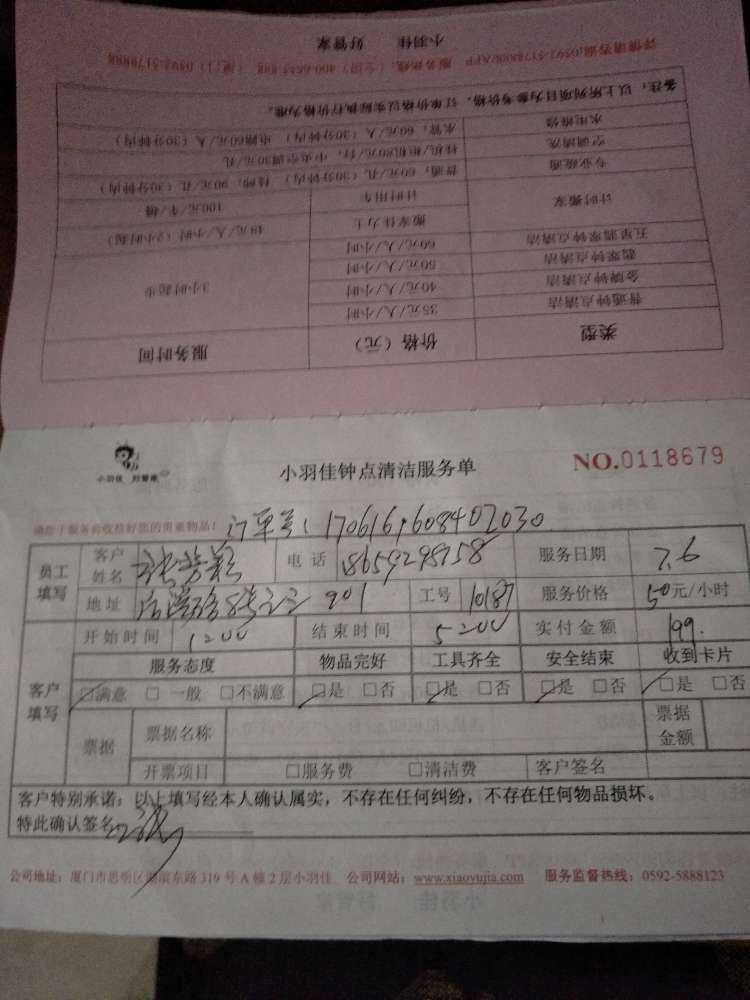 类型 价格（元） 服务时间
普通钟点清洁 35元/人/小时 3小时起步
金牌钟点清洁 40元/人/小时
翡翠钟点清洁 50元/人/小时
五星翡翠钟点清洁 60元/人/小时
计时搬家 搬家 力士 48元/人/小时（2小时起）
计时用车 100元/车/辆
专业疏通 普通：60元/孔（30分钟内） 90元/孔（30分钟内）
空调清洗 挂机/柜机80元/台，中央空调30元/孔
水电维修 水管：60元/人（30分钟内） 电路60元/人（30分钟内）
备注：以上所列项目为参考价格，订单价格以实际执行价格为准。
小羽佳 好管家
小羽佳 好管家
小羽佳钟点清洁服务单
NO.0118679
订单号：
员工填写 客户姓名 电话 服务日期 7.6
地址 901 工号 10187 服务价格 50元/小时
客户填写 开始时间 1200 结束时间 5200 实付金额 199.
服务态度 物品完好 工具齐全 安全结束 收到卡片
□满意 □一般 □不满意 □是 □否 □是 □否 □是 □否 □是 □否
票据 票据名称 票据金额
开票项目 □服务费 □清洁费 客户签名
客户特别承诺：以上填写经本人确认属实，不存在任何纠纷，不存在任何物品损坏。
特此确认签名
公司地址：厦门市思明区湖滨东路319号A幢2层小羽佳 公司网站：www.xiaoyujia.com 服务监督热线：0592-5888123